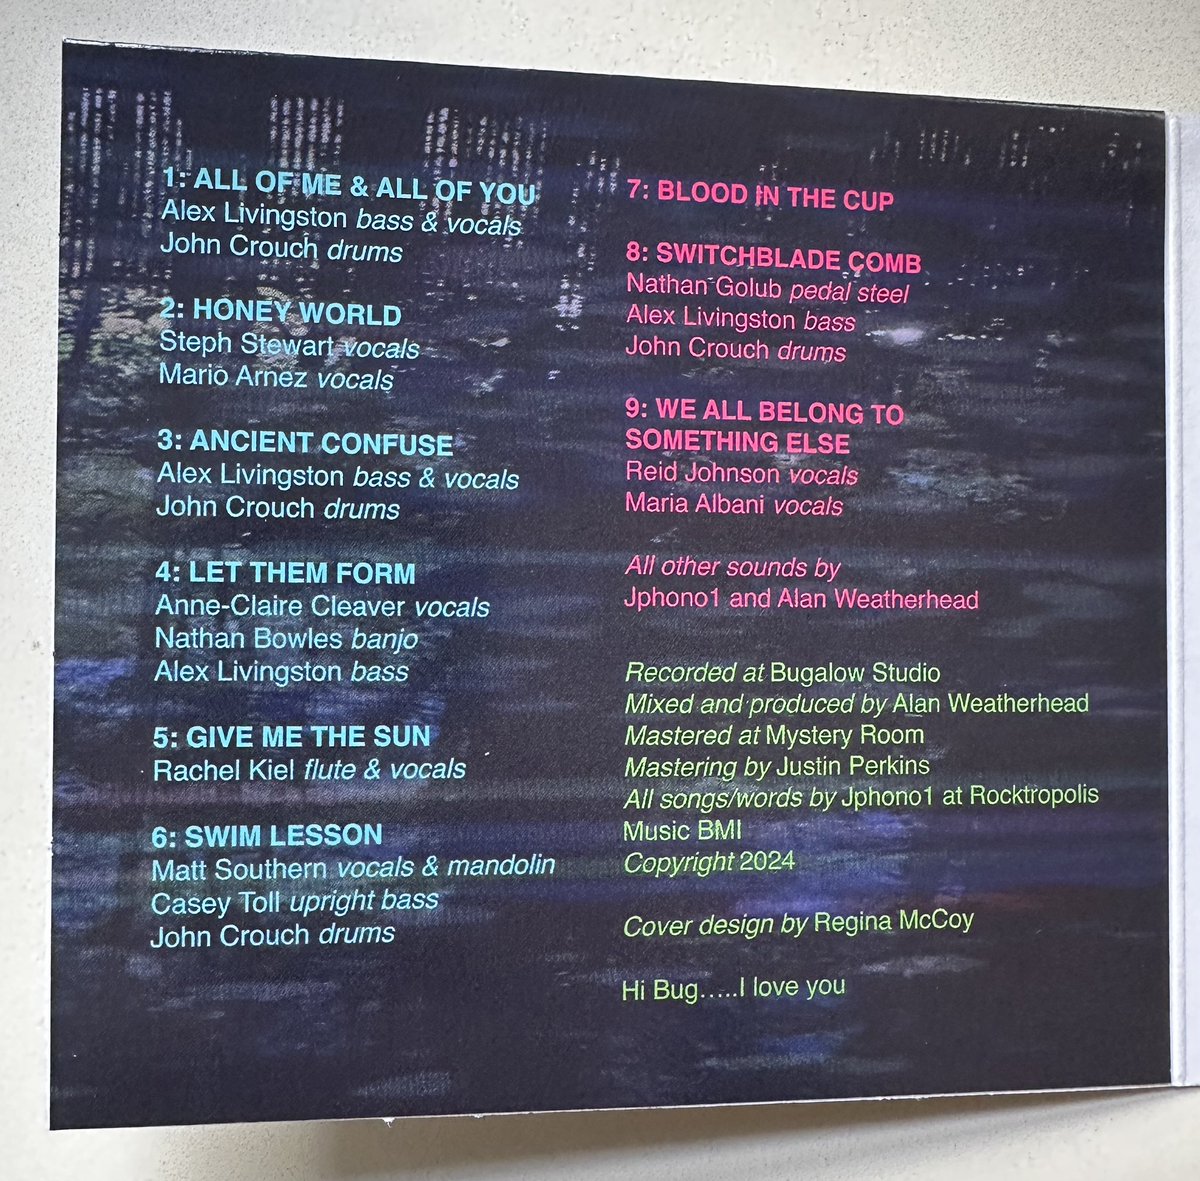 1: ALL OF ME & ALL OF YOU
Alex Livingston bass & vocals
John Crouch drums
2: HONEY WORLD
Steph Stewart vocals
Mario Arnez vocals
3: ANCIENT CONFUSE
Alex Livingston bass & vocals
John Crouch drums
4: LET THEM FORM
Anne-Claire Cleaver vocals
Nathan Bowles banjo
Alex Livingston bass
5: GIVE ME THE SUN
Rachel Kiel flute & vocals
6: SWIM LESSON
Matt Southern vocals & mandolin
Casey Toll upright bass
John Crouch drums
7: BLOOD IN THE CUP
8: SWITCHBLADE COMB
Nathan Golub pedal steel
Alex Livingston bass
John Crouch drums
9: WE ALL BELONG TO
SOMETHING ELSE
Reid Johnson vocals
Maria Albani vocals
All other sounds by
Jphono1 and Alan Weatherhead
Recorded at Bugalow Studio
Mixed and produced by Alan Weatherhead
Mastered at Mystery Room
Mastering by Justin Perkins
All songs/words by Jphono1 at Rocktropolis
Music BMI
Copyright 2024
Cover design by Regina McCoy
Hi Bug.....I love you